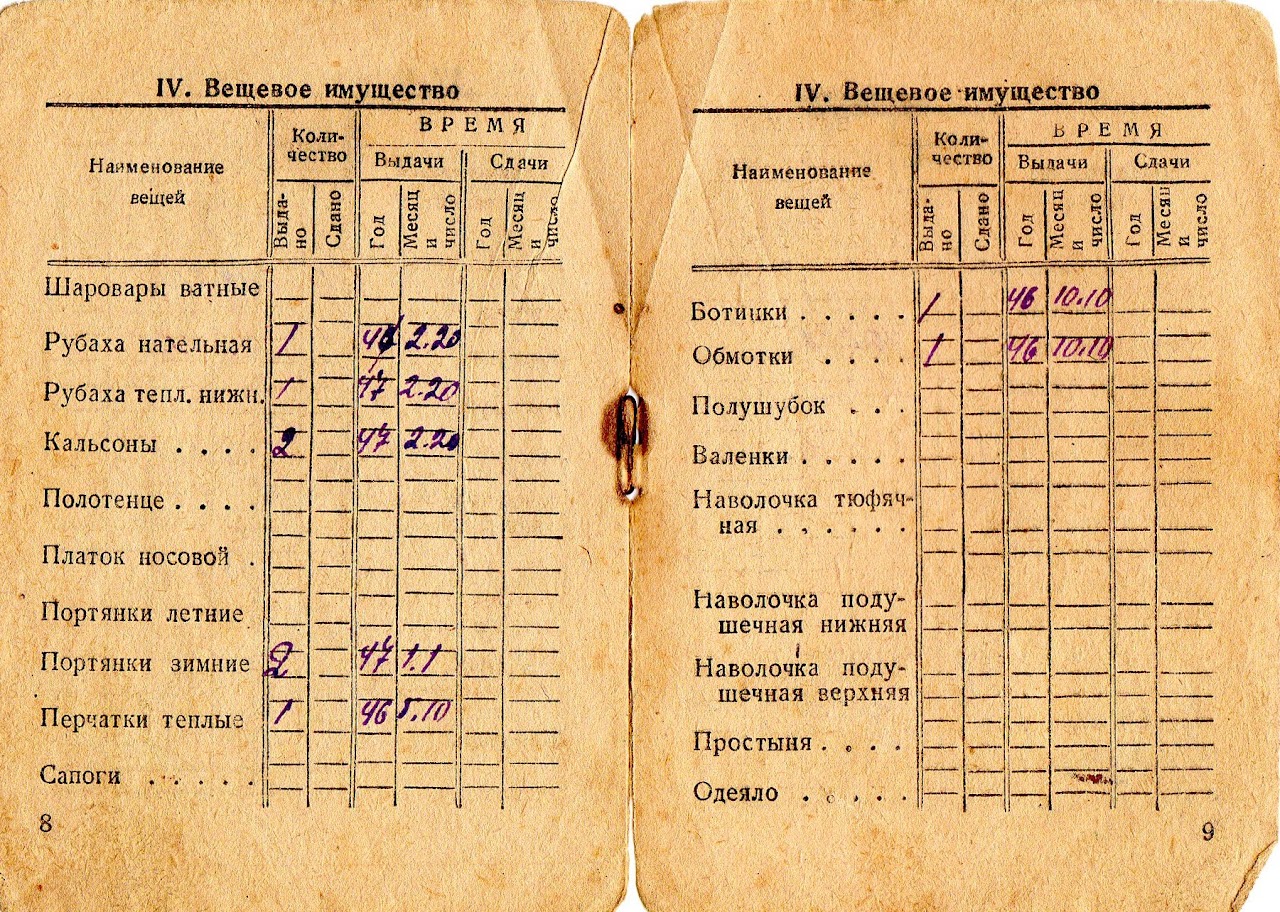 IV. Вещевое имущество
Наименование вещей
Коли-
чество
ВРЕМЯ
Выдачи
Сдачи
Выда-
но
Сдано
Год
Месяц
и
число
Год
Месяц
и
число
Шаровары ватные
Рубаха нательная 1 2.20
Рубаха тепл. нижн. 1 47 2.20
Кальсоны . . . . 2 47 2.20
Полотенце . . . .
Платок носовой .
Портянки летние
Портянки зимние 2 47 1.1
Перчатки теплые 1 46 5.10
Сапоги . . . . .
8
IV. Вещевое имущество
Наименование
вещей
Коли-
чество
ВРЕМЯ
Выдачи
Сдачи
Выда-
но
Сдано
Год
Месяц
и
число
Год
Месяц
и
число
Ботинки . . . . . 1 46 10.10
Обмотки . . . . 1 46 10.10
Полушубок . . .
Валенки . . . . .
Наволочка тюфяч-
ная . . . . . .
Наволочка поду-
шечная нижняя
Наволочка поду-
шечная верхняя
Простыня . . . .
Одеяло . . . . .
9